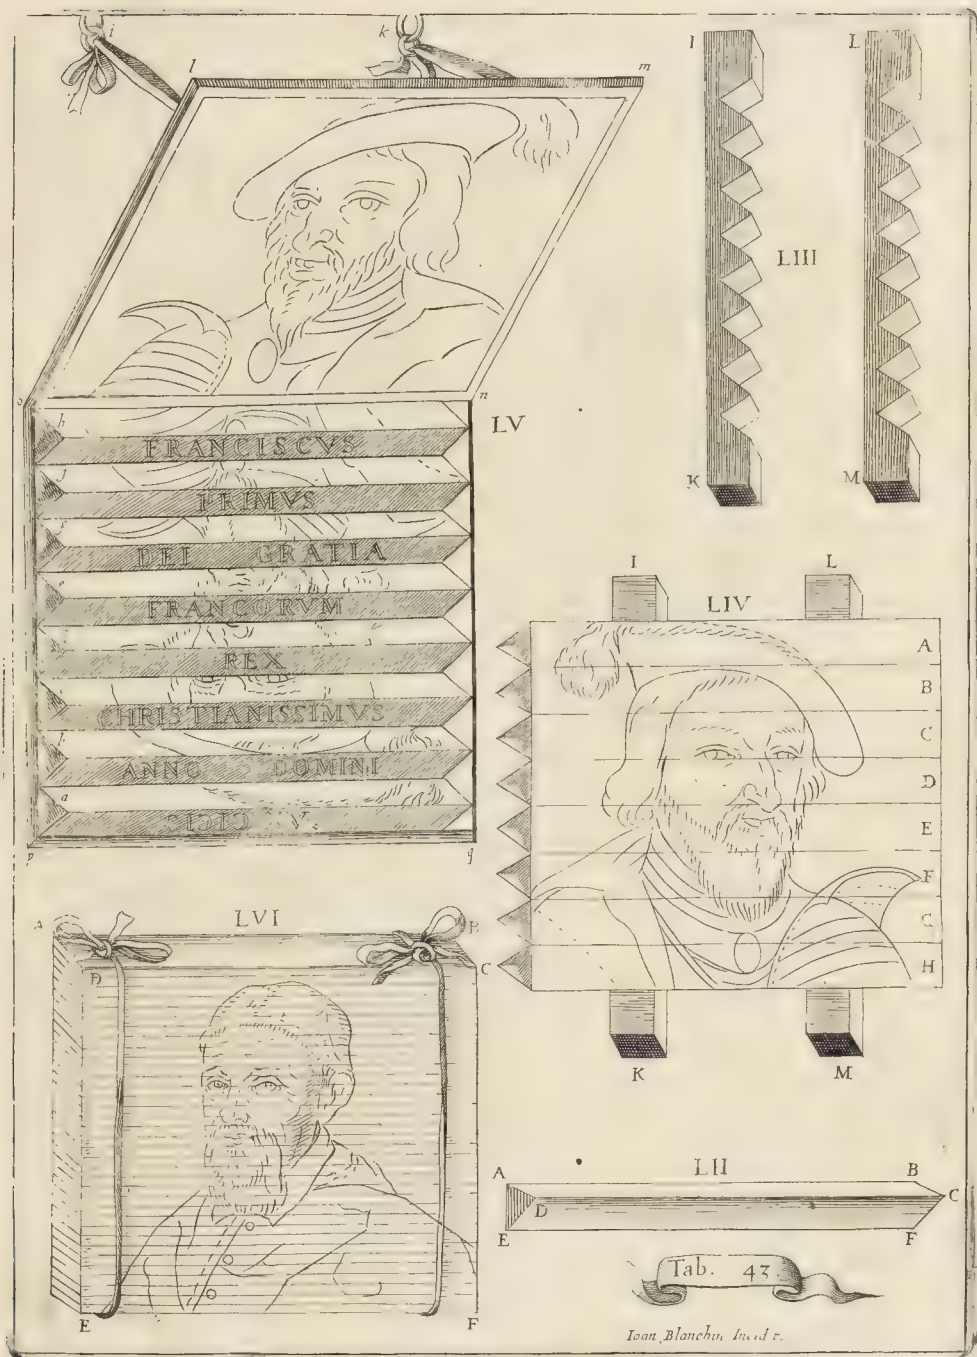 i k
l m
I L
LIII
K M
o n
LV
h
FRANCISCVS
PRIMVS
DEI GRATIA
FRANCORVM
REX
CHRISTIANISSIMVS
ANNO DOMINI
a
p q
I L
LIV
A
B
C
D
E
F
G
H
K M
LVI
A B
D C
E F
LII
A B
D C
E F
Tab. 43
Ioan Blanchin